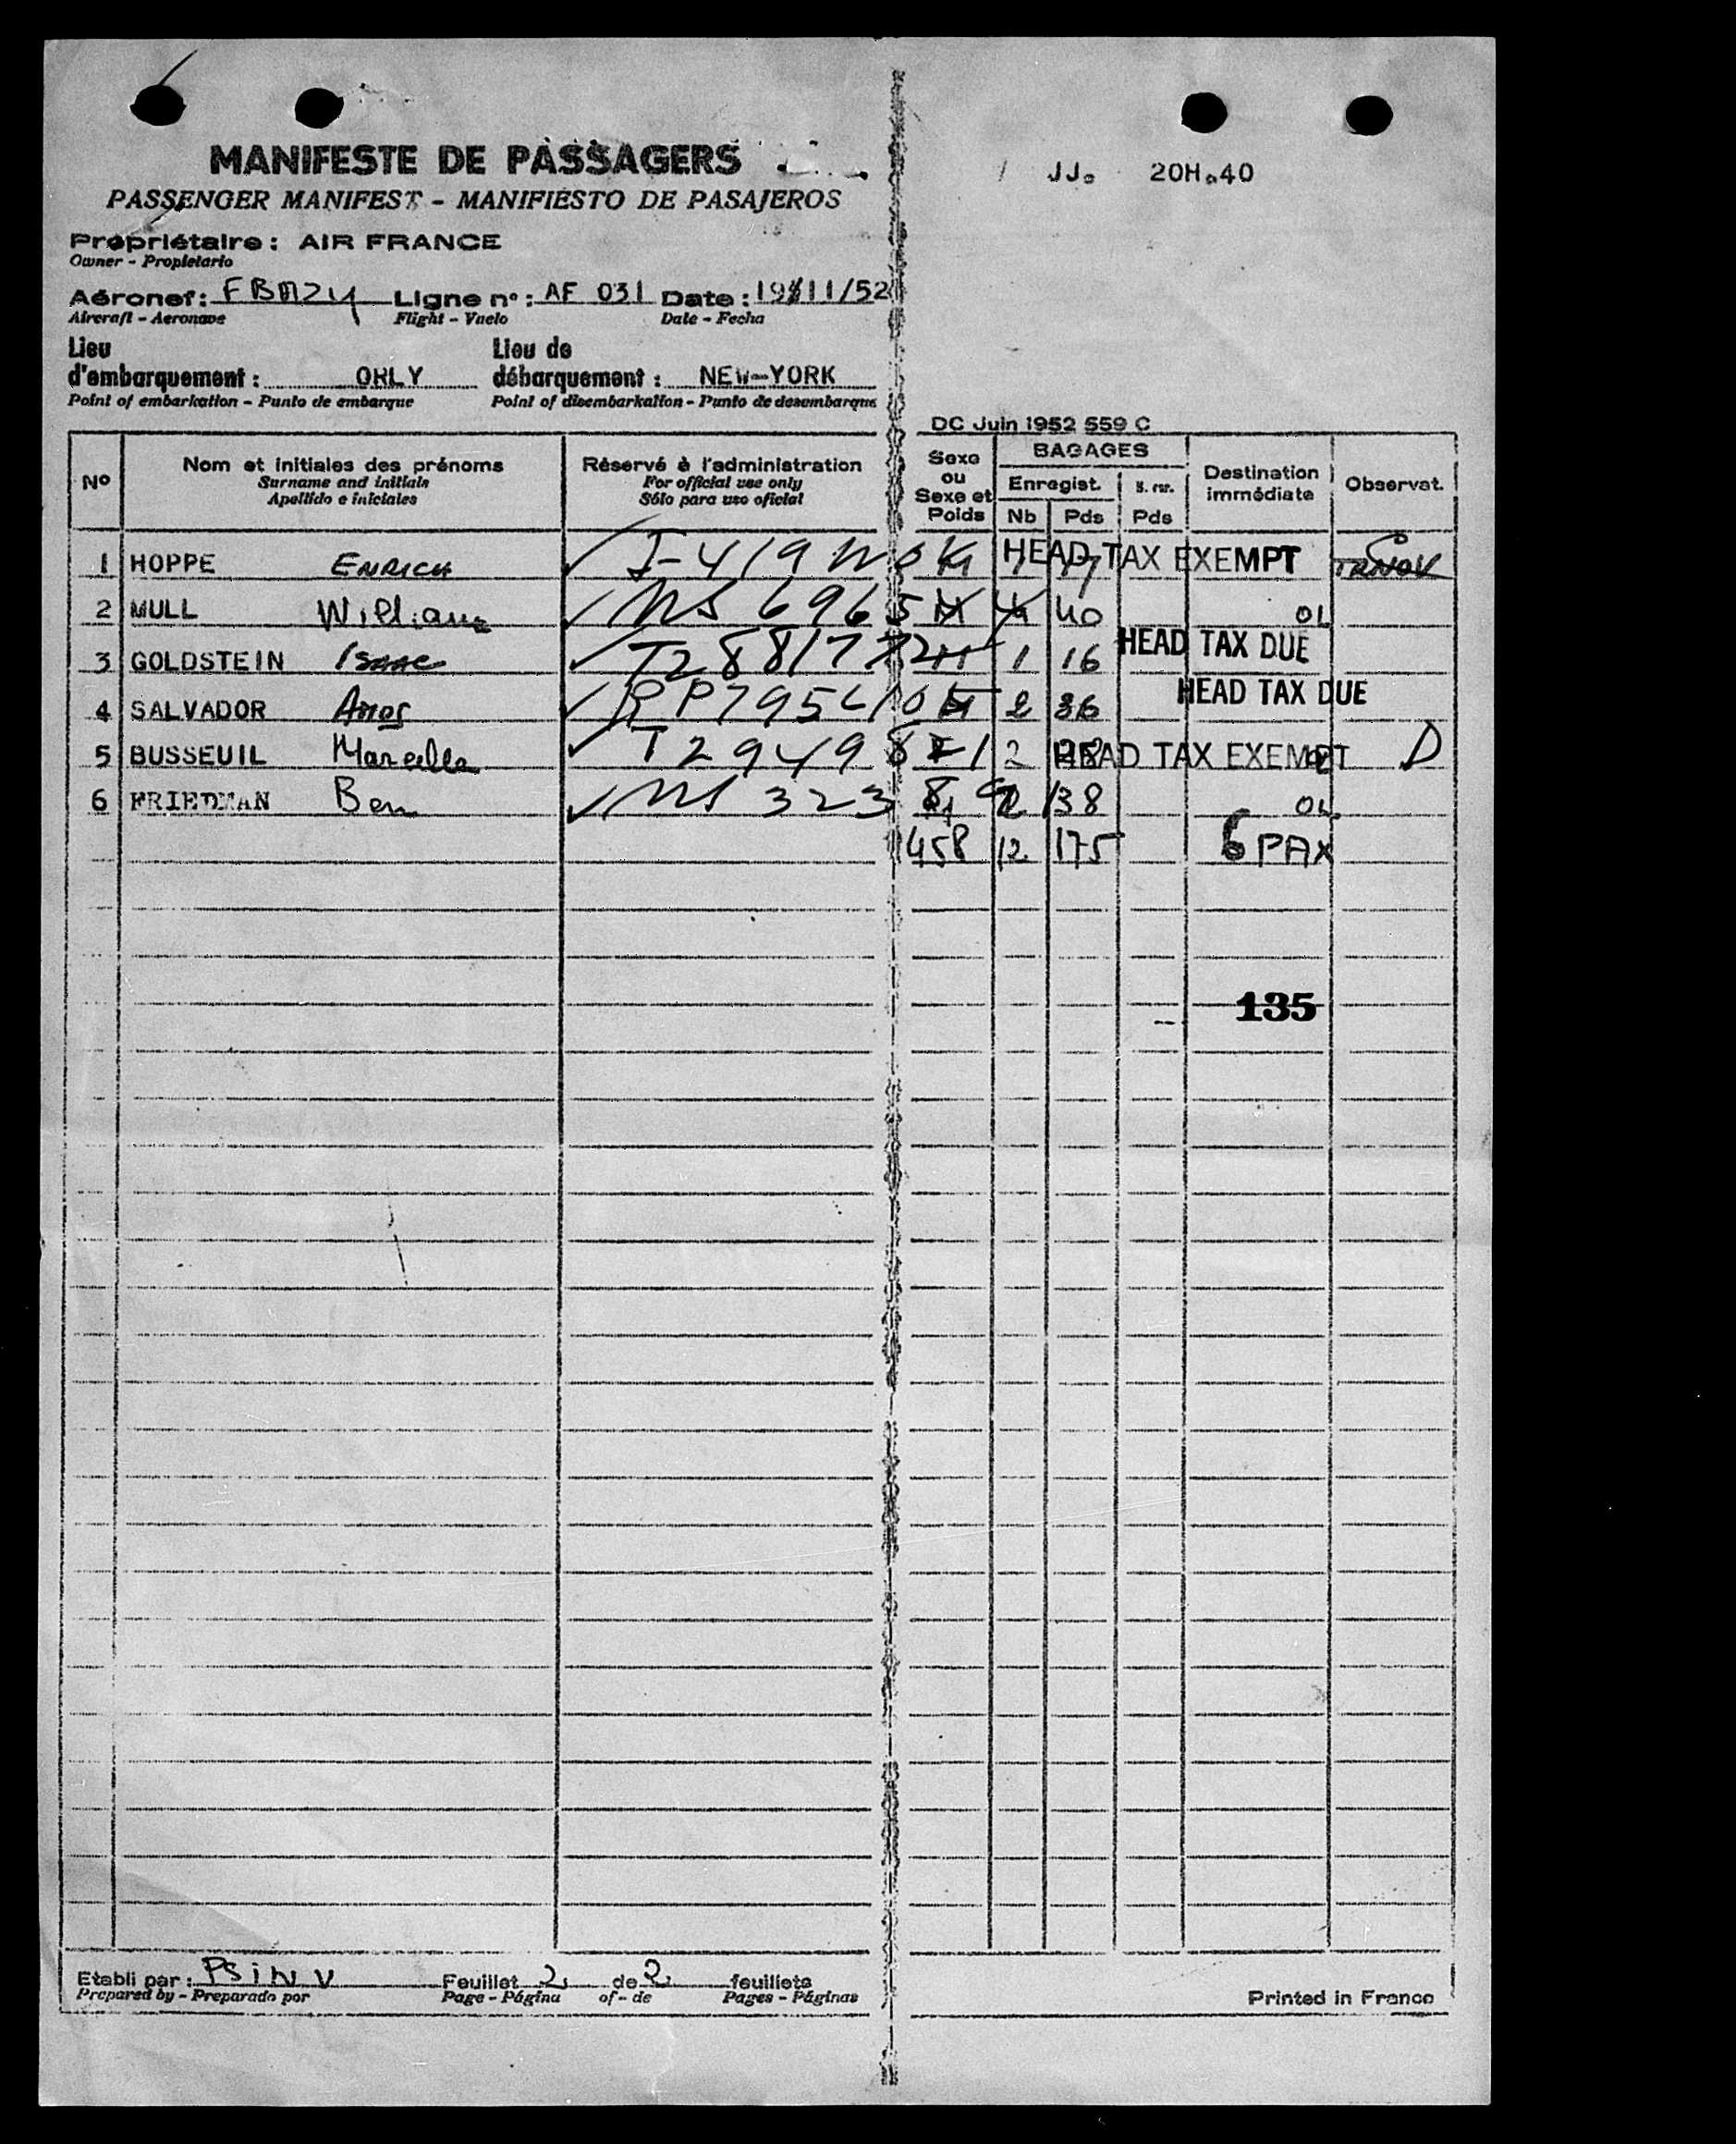 MANIFESTE DE PASSAGERS
JJ. 20H.40
PASSENGER MANIFEST - MANIFIESTO DE PASAJEROS
Propriétaire : AIR FRANCE
Owner - Propietario
Aéronef : Ligne n° : AF 031 Date : 19/11/52
Aircraft - Aeronave Flight - Vuelo Date - Fecha
Lieu d'embarquement : ORLY
Point of embarkation - Punto de embarque
Lieu de débarquement : NEW-YORK
Point of disembarkation - Punto de desembarque
DC Juin 1952 559 C
N°
Nom et initiales des prénoms
Surname and initials
Apellido e iniciales
Réservé à l'administration
For official use only
Sólo para uso oficial
Sexe ou Sexe et Poids
BAGAGES
Enregist.
Nb Pds Pds
Destination immédiate
Observat.
1 HOPPE ENRICH HEAD TAX EXEMPT
2 MULL William NS 6965 40 OL
3 GOLDSTEIN Isaac T2881772 1 16 HEAD TAX DUE
4 SALVADOR Amos 2 36 HEAD TAX DUE
5 BUSSEUIL Marcelle 2 HEAD TAX EXEMPT D
6 FRIEDMAN Ben 38 OL
458 12 175 6 PAX
135
Etabli par : Feuillet 2 de 2 feuillets
Prepared by - Preparado por Page - Página of - de Pages - Páginas
Printed in France